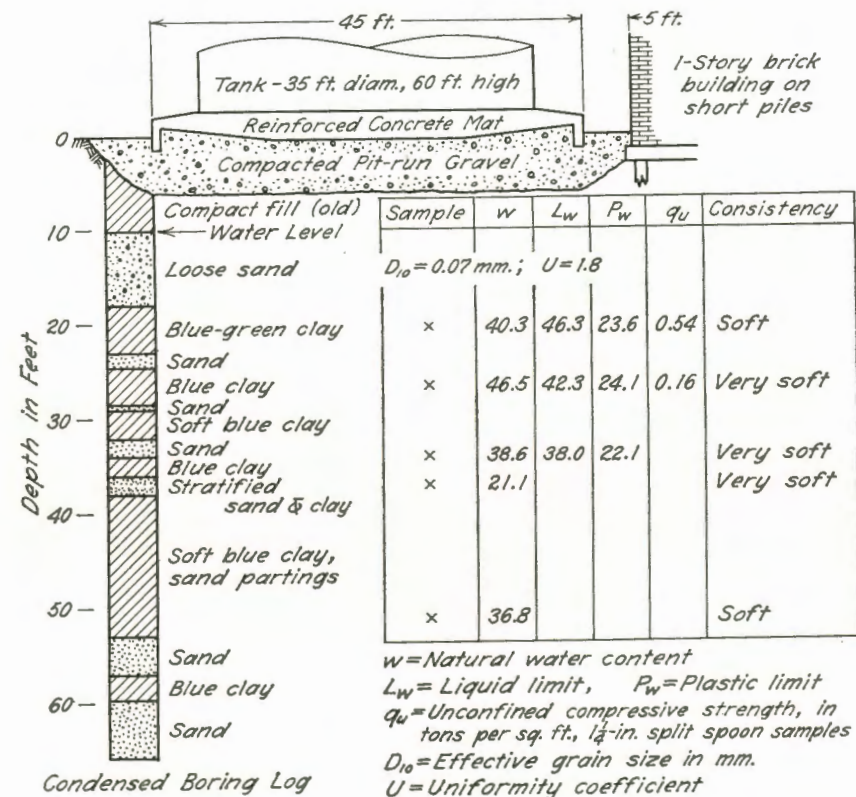 45 ft.
5 ft.
Tank - 35 ft. diam., 60 ft. high
1-Story brick
building on
short piles
Reinforced Concrete Mat
Compacted Pit-run Gravel
Depth in Feet
0
10
20
30
40
50
60
Compact fill (old)
Water Level
Loose sand
Blue-green clay
Sand
Blue clay
Sand
Soft blue clay
Sand
Blue clay
Stratified
sand & clay
Soft blue clay,
sand partings
Sand
Blue clay
Sand
Condensed Boring Log
Sample w Lw Pw qu Consistency
D10 = 0.07 mm.; U = 1.8
× 40.3 46.3 23.6 0.54 Soft
× 46.5 42.3 24.1 0.16 Very soft
× 38.6 38.0 22.1 Very soft
× 21.1 Very soft
× 36.8 Soft
w = Natural water content
Lw = Liquid limit, Pw = Plastic limit
qu = Unconfined compressive strength, in
tons per sq. ft., 1¼-in. split spoon samples
D10 = Effective grain size in mm.
U = Uniformity coefficient